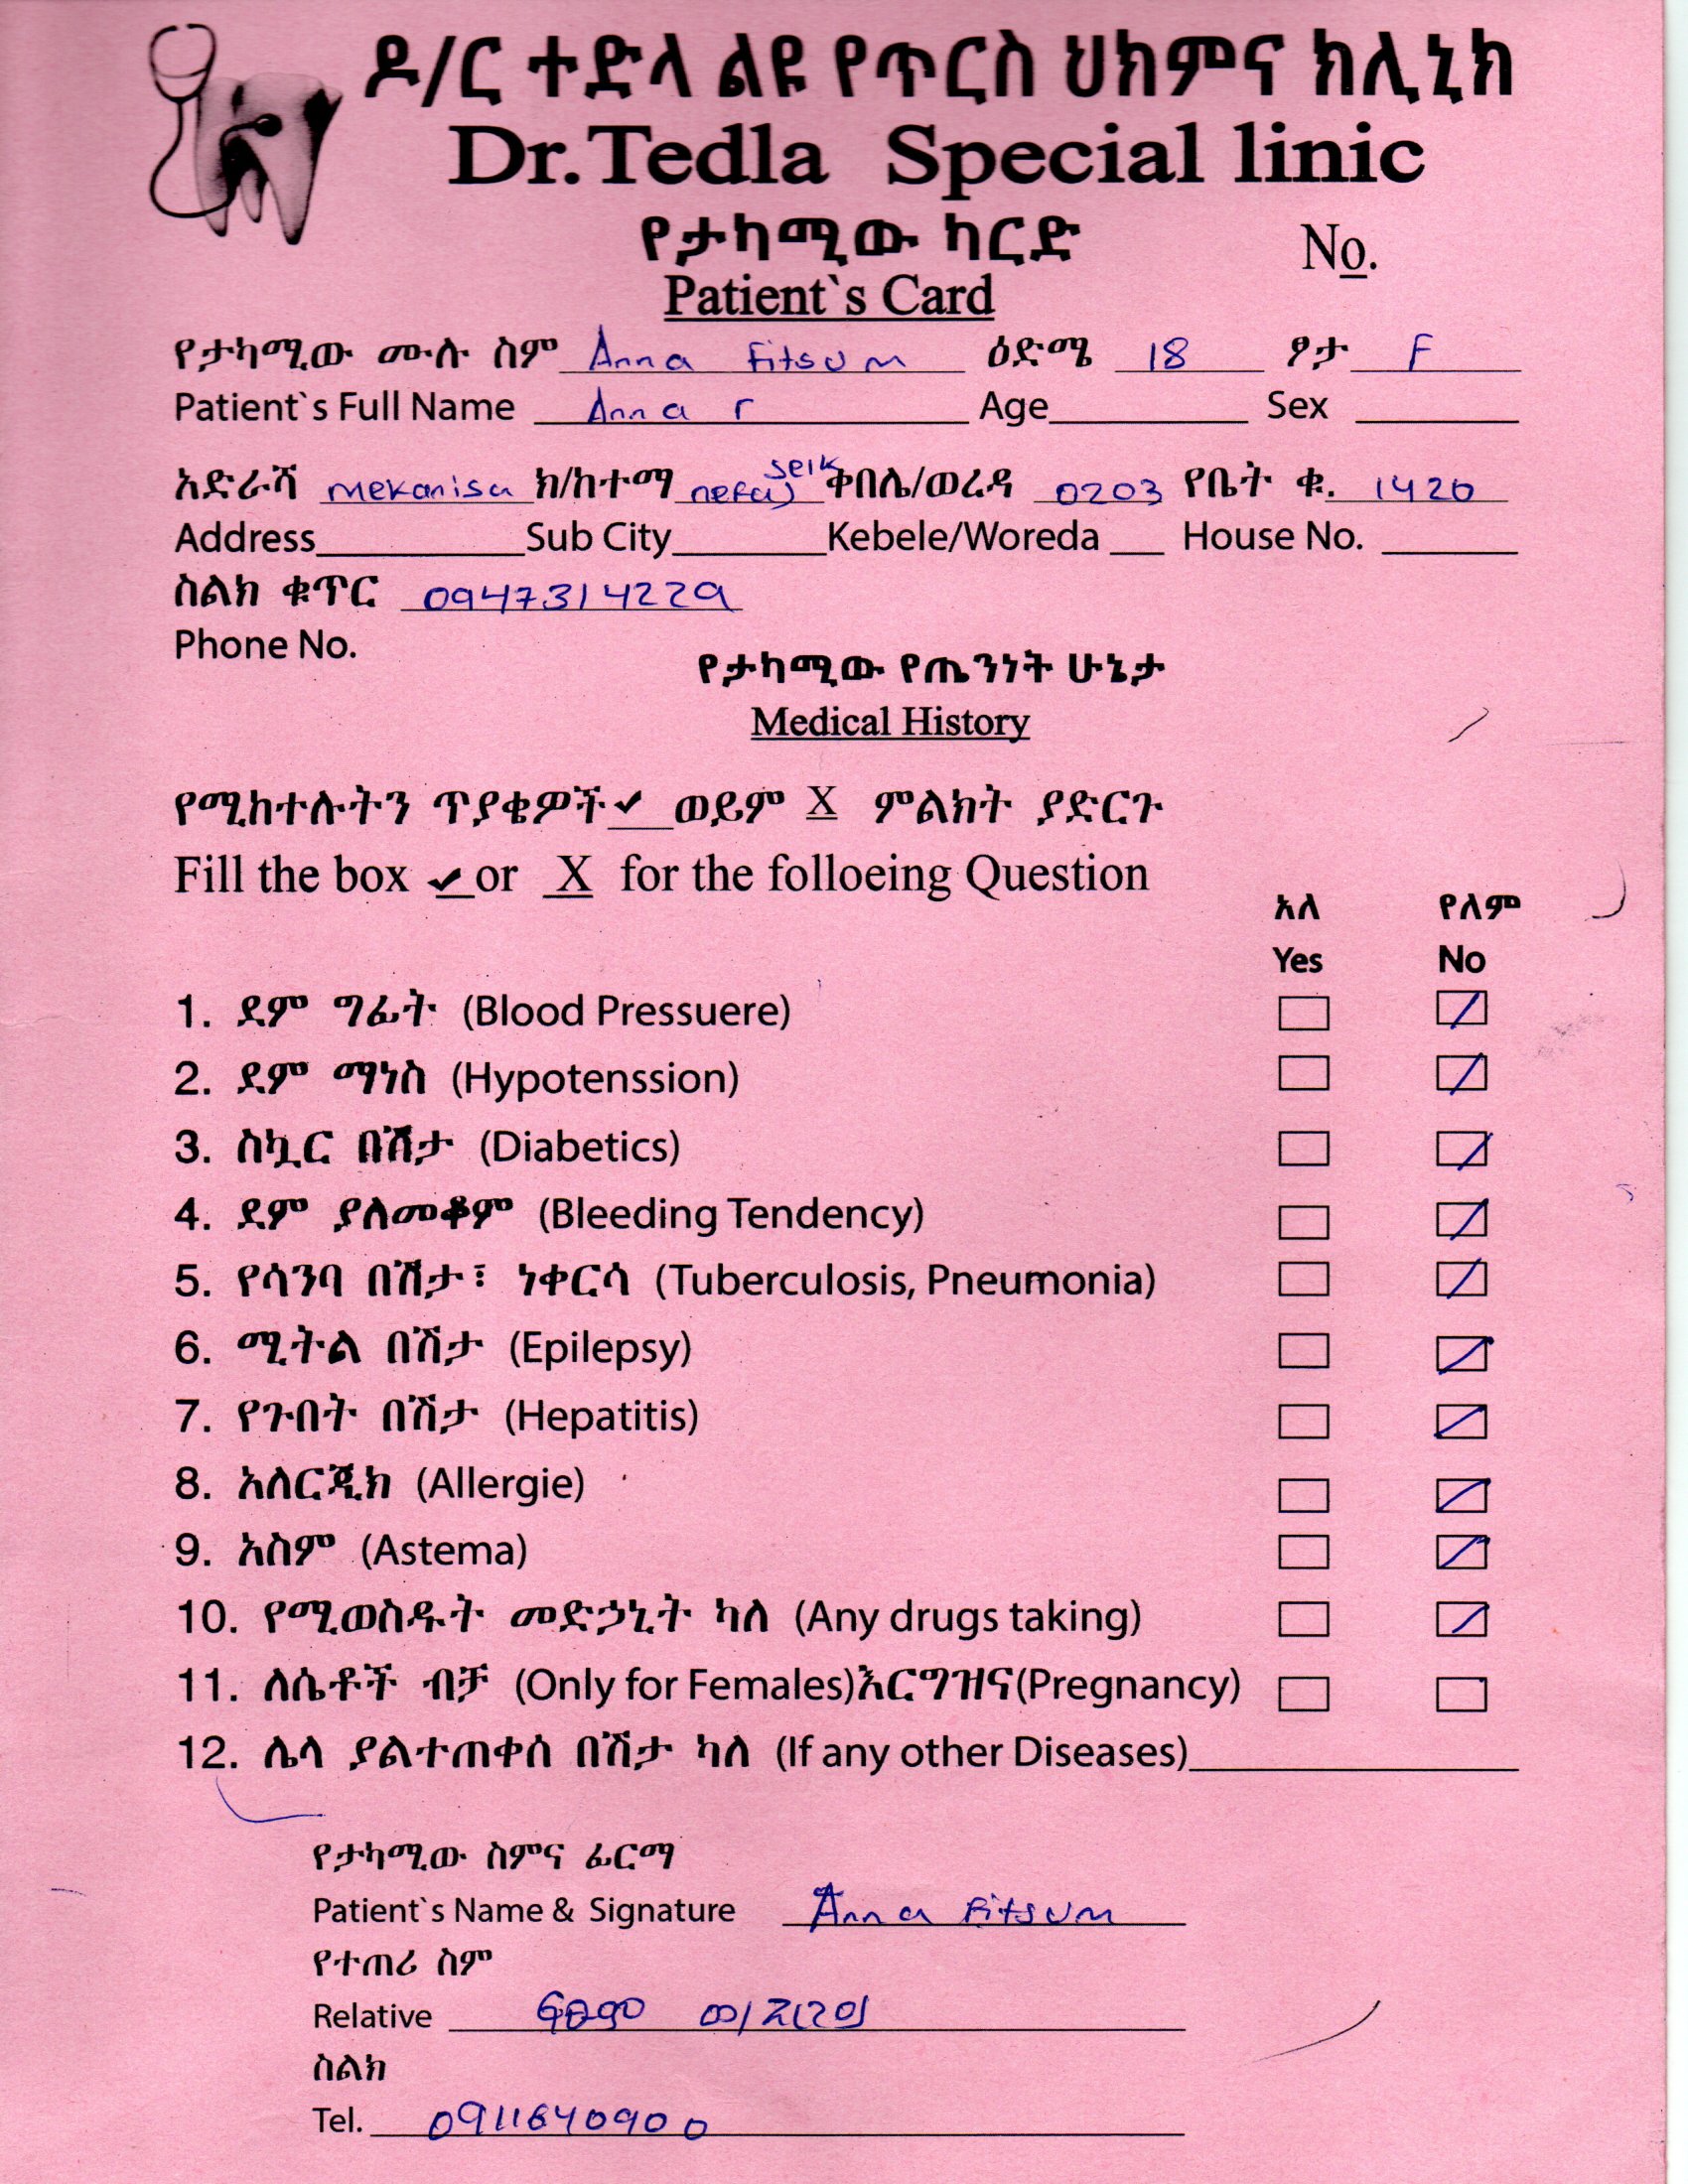 ዶ/ር ተድላ ልዩ የጥርስ ህክምና ክሊኒክ
Dr.Tedla Special linic
የታካሚው ካርድ
No.
Patient`s Card
የታካሚው ሙሉ ስም Anna Fitsum ዕድሜ 18 ፆታ F
Patient`s Full Name Anna r Age Sex
አድራሻ mekanisa ክ/ከተማ nefas selk ቀበሌ/ወረዳ 0203 የቤት ቁ. 1420
Address Sub City Kebele/Woreda House No.
ስልክ ቁጥር 0947314229
Phone No.
የታካሚው የጤንነት ሁኔታ
Medical History
የሚከተሉትን ጥያቄዎች ✓ ወይም X ምልክት ያድርጉ
Fill the box ✓ or X for the folloeing Question
አለ የለም
Yes No
1. ደም ግፊት (Blood Pressuere)
2. ደም ማነስ (Hypotenssion)
3. ስኳር በሽታ (Diabetics)
4. ደም ያለመቆም (Bleeding Tendency)
5. የሳንባ በሽታ፣ ነቀርሳ (Tuberculosis, Pneumonia)
6. ሚትል በሽታ (Epilepsy)
7. የጉበት በሽታ (Hepatitis)
8. አለርጂክ (Allergie)
9. አስም (Astema)
10. የሚወስዱት መድኃኒት ካለ (Any drugs taking)
11. ለሴቶች ብቻ (Only for Females)እርግዝና(Pregnancy)
12. ሌላ ያልተጠቀሰ በሽታ ካለ (If any other Diseases)
የታካሚው ስምና ፊርማ
Patient`s Name & Signature Anna Fitsum
የተጠሪ ስም
Relative ፍፁም
ስልክ
Tel. 0911640900